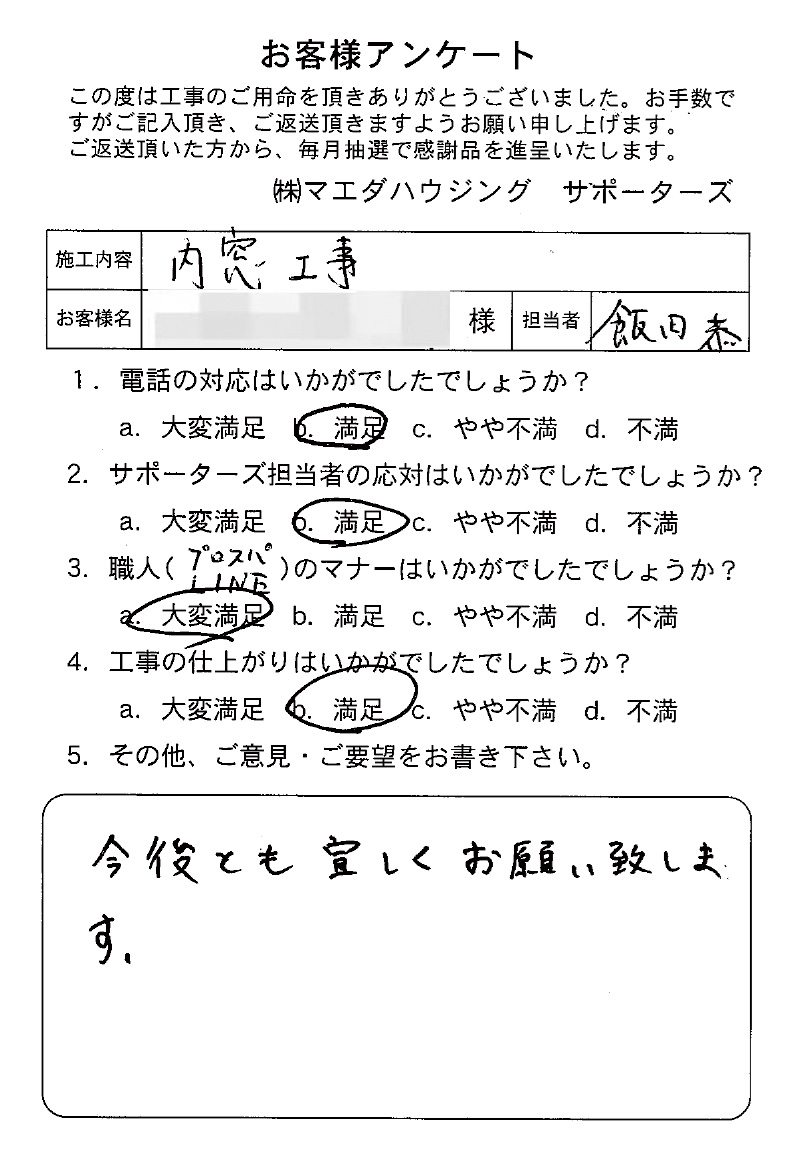 お客様アンケート
この度は工事のご用命を頂きありがとうございました。お手数で
すがご記入頂き、ご返送頂きますようお願い申し上げます。
ご返送頂いた方から、毎月抽選で感謝品を進呈いたします。
㈱マエダハウジング サポーターズ
施工内容 内窓工事
お客様名 様 担当者 飯田恭
1. 電話の対応はいかがでしたでしょうか？
a. 大変満足 b. 満足 c. やや不満 d. 不満
2. サポーターズ担当者の応対はいかがでしたでしょうか？
a. 大変満足 b. 満足 c. やや不満 d. 不満
3. 職人(プロスパLINE)のマナーはいかがでしたでしょうか？
a. 大変満足 b. 満足 c. やや不満 d. 不満
4. 工事の仕上がりはいかがでしたでしょうか？
a. 大変満足 b. 満足 c. やや不満 d. 不満
5. その他、ご意見・ご要望をお書き下さい。
今後とも宜しくお願い致しま
す。